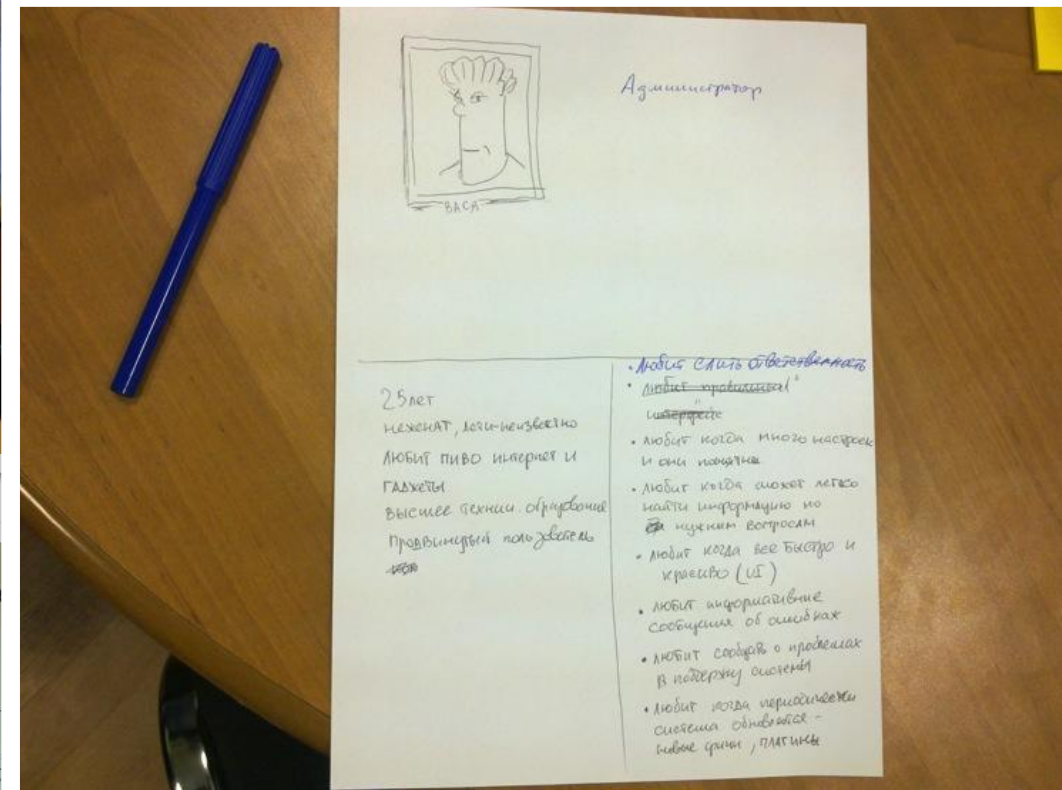 Администратор
ВАСЯ
25 лет
неженат, дети-неизвестно
любит пиво интернет и
гаджеты
высшее технич. образование
продвинутый пользователь
• любит слить ответственность
• любит правильный "
интерфейс
• любит когда много настроек
и они понятны
• любит когда может легко
найти информацию по
нужным вопросам
• любит когда все быстро и
красиво (UI)
• любит информативные
сообщения об ошибках
• любит сообщать о проблемах
в поддержку системы
• любит когда периодически
система обновляется -
новые фичи, плагины